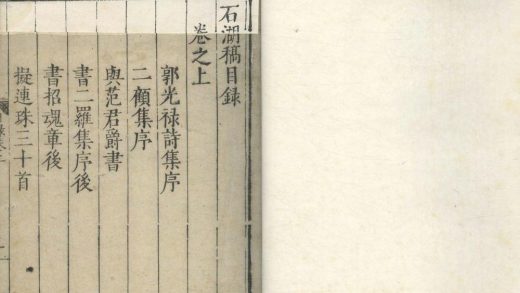 石湖稿目錄
卷之上
郭光禄詩集序
二顧集序
與范君爵書
書二羅集序後
書招魂章後
擬連珠三十首